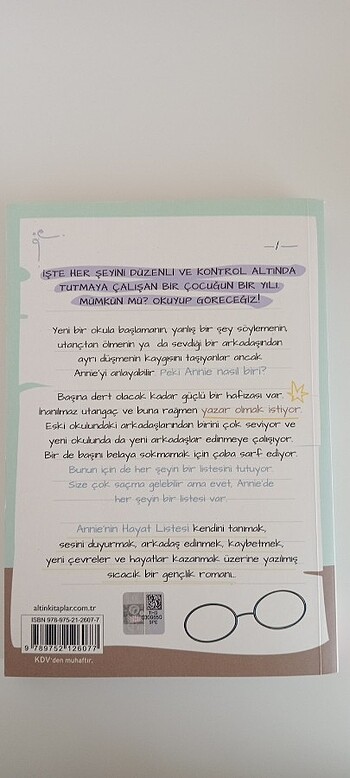 İŞTE HER ŞEYİNİ DÜZENLİ VE KONTROL ALTINDA
TUTMAYA ÇALIŞAN BİR ÇOCUĞUN BİR YILI.
MÜMKÜN MÜ? OKUYUP GÖRECEĞİZ!
Yeni bir okula başlamanın, yanlış bir şey söylemenin,
utançtan ölmenin ya da sevdiği bir arkadaşından
ayrı düşmenin kaygısını taşıyanlar ancak
Annie'yi anlayabilir. Peki Annie nasıl biri?
Başına dert olacak kadar güçlü bir hafızası var.
İnanılmaz utangaç ve buna rağmen yazar olmak istiyor.
Eski okulundaki arkadaşlarından birini çok seviyor ve
yeni okulunda da yeni arkadaşlar edinmeye çalışıyor.
Bir de başını belaya sokmamak için çaba sarf ediyor.
Bunun için de her şeyin bir listesini tutuyor.
Size çok saçma gelebilir ama evet, Annie'de
her şeyin bir listesi var.
Annie'nin Hayat Listesi kendini tanımak,
sesini duyurmak, arkadaş edinmek, kaybetmek,
yeni çevreler ve hayatlar kazanmak üzerine yazılmış
sıcacık bir gençlik romanı...
altinkitaplar.com.tr
ISBN 978-975-21-2607-7
9 789752 126077
KDV'den muaftır.